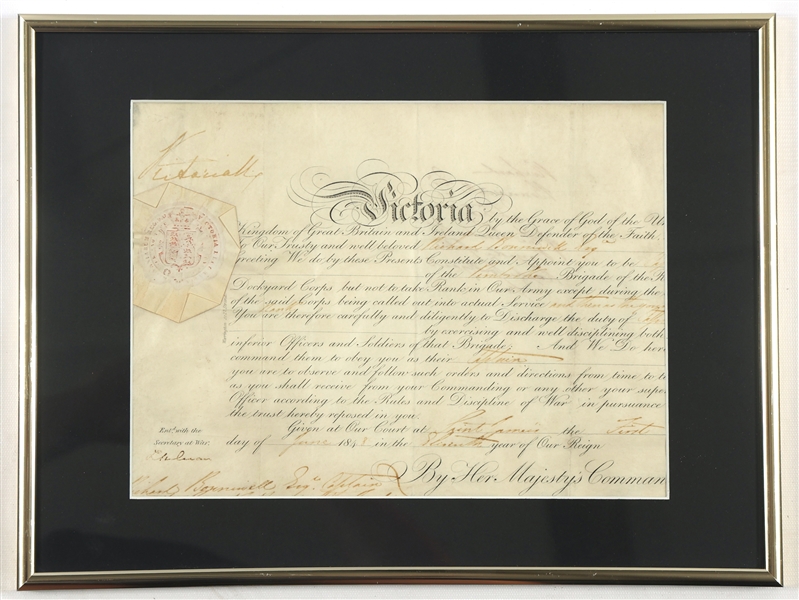 Victoria R
Victoria by the Grace of God of the Un
Kingdom of Great Britain and Ireland Queen Defender of the Faith
to Our Trusty and well beloved Richard Esqr
Greeting We do by these Presents Constitute and Appoint you to be
of the Pembroke Brigade of the
Dockyard Corps but not to take Rank in Our Army except during the
of the said Corps being called out into actual Service
You are therefore carefully and diligently to Discharge the duty of
by exercising and well disciplining both
inferior Officers and Soldiers of that Brigade And We Do here
command them to obey you as their Captain
you are to observe and follow such orders and directions from time to t
as you shall receive from your Commanding or any other your supe
Officer according to the Rules and Discipline of War in pursuance
the trust hereby reposed in you
Given at Our Court at Saint James's the First
day of June 1848 in the Eleventh year of Our Reign
Entd. with the
Secretary at War.
By Her Majesty's Comman
Esqr. Captain